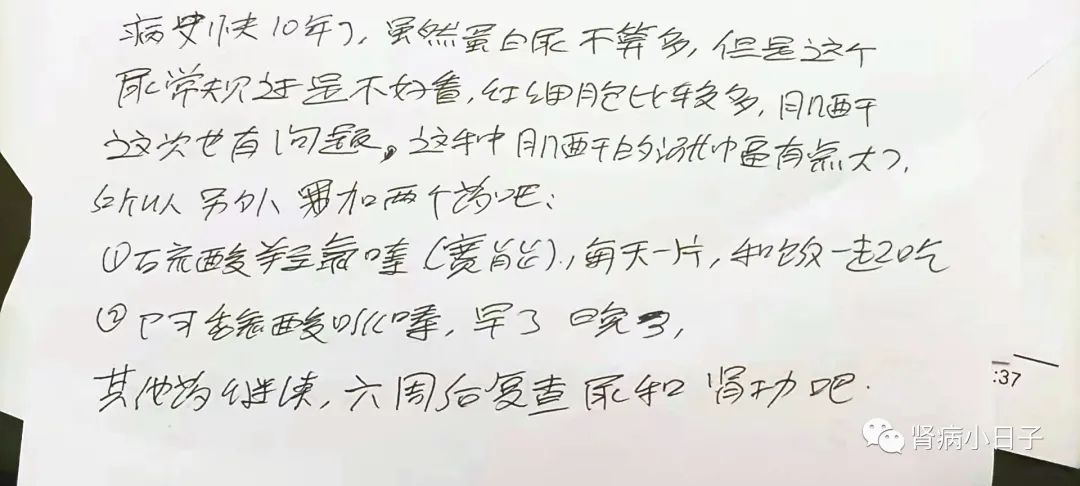 病史快10年了，虽然蛋白尿不算多，但是这个
尿常规还是不好看，红细胞比较多，肌酐
这次也有问题。这种肌酐的有点大了，
所以另外要加两个药吧：
①硫酸羟氯喹（赛能），每天一片，和饭一起吃
②阿魏酸哌嗪，早3 晚3，
其他药继续，六周后复查尿和肾功吧.
:37
肾病小日子